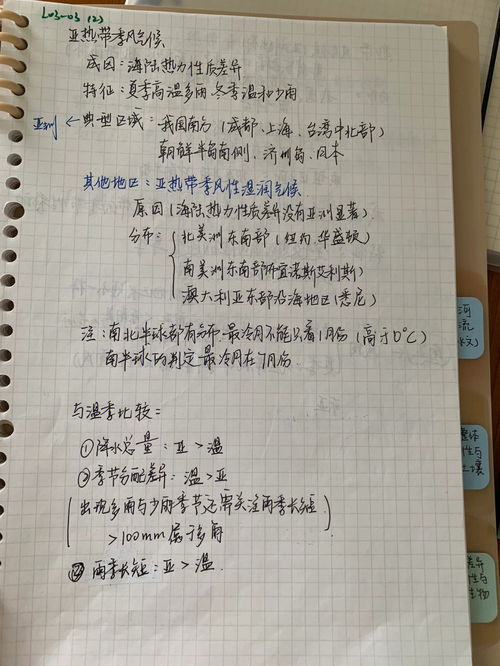 L03-03 (2)
亚热带季风气候
成因：海陆热力性质差异
特征：夏季高温多雨 冬季温和少雨
亚洲 ← 典型区域：我国南方（成都、上海、台湾中北部）
朝鲜半岛南侧、济州岛、日本
其他地区：亚热带季风性湿润气候
原因（海陆热力性质差异没有亚洲显著）
分布：北美洲东南部（纽约、华盛顿）
南美洲东南部（布宜诺斯艾利斯）
澳大利亚东部沿海地区（悉尼）
注：南北半球都有分布，最冷月不能只看1月份（高于0℃）
南半球的判定最冷月在7月份
与温季比较：
①降水总量：亚 > 温
②季节分配差异：温 > 亚
（出现多雨与少雨季节还需关注雨季长短
>100mm属于多雨
③ 雨季长短：亚 > 温
河
流
水文)
整体
性与
土壤
差异
性与
生物